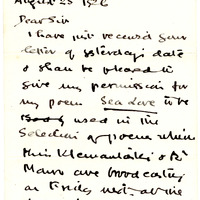 August 25 1926
Dear Sir
I have just received your
letter of yesterday's date
& shall be pleased to
give my permission for
my poem Sea Love to be
used in the
selection of poems which
Miss Klemantaski & Mr
are broadcasting
on Friday next at the